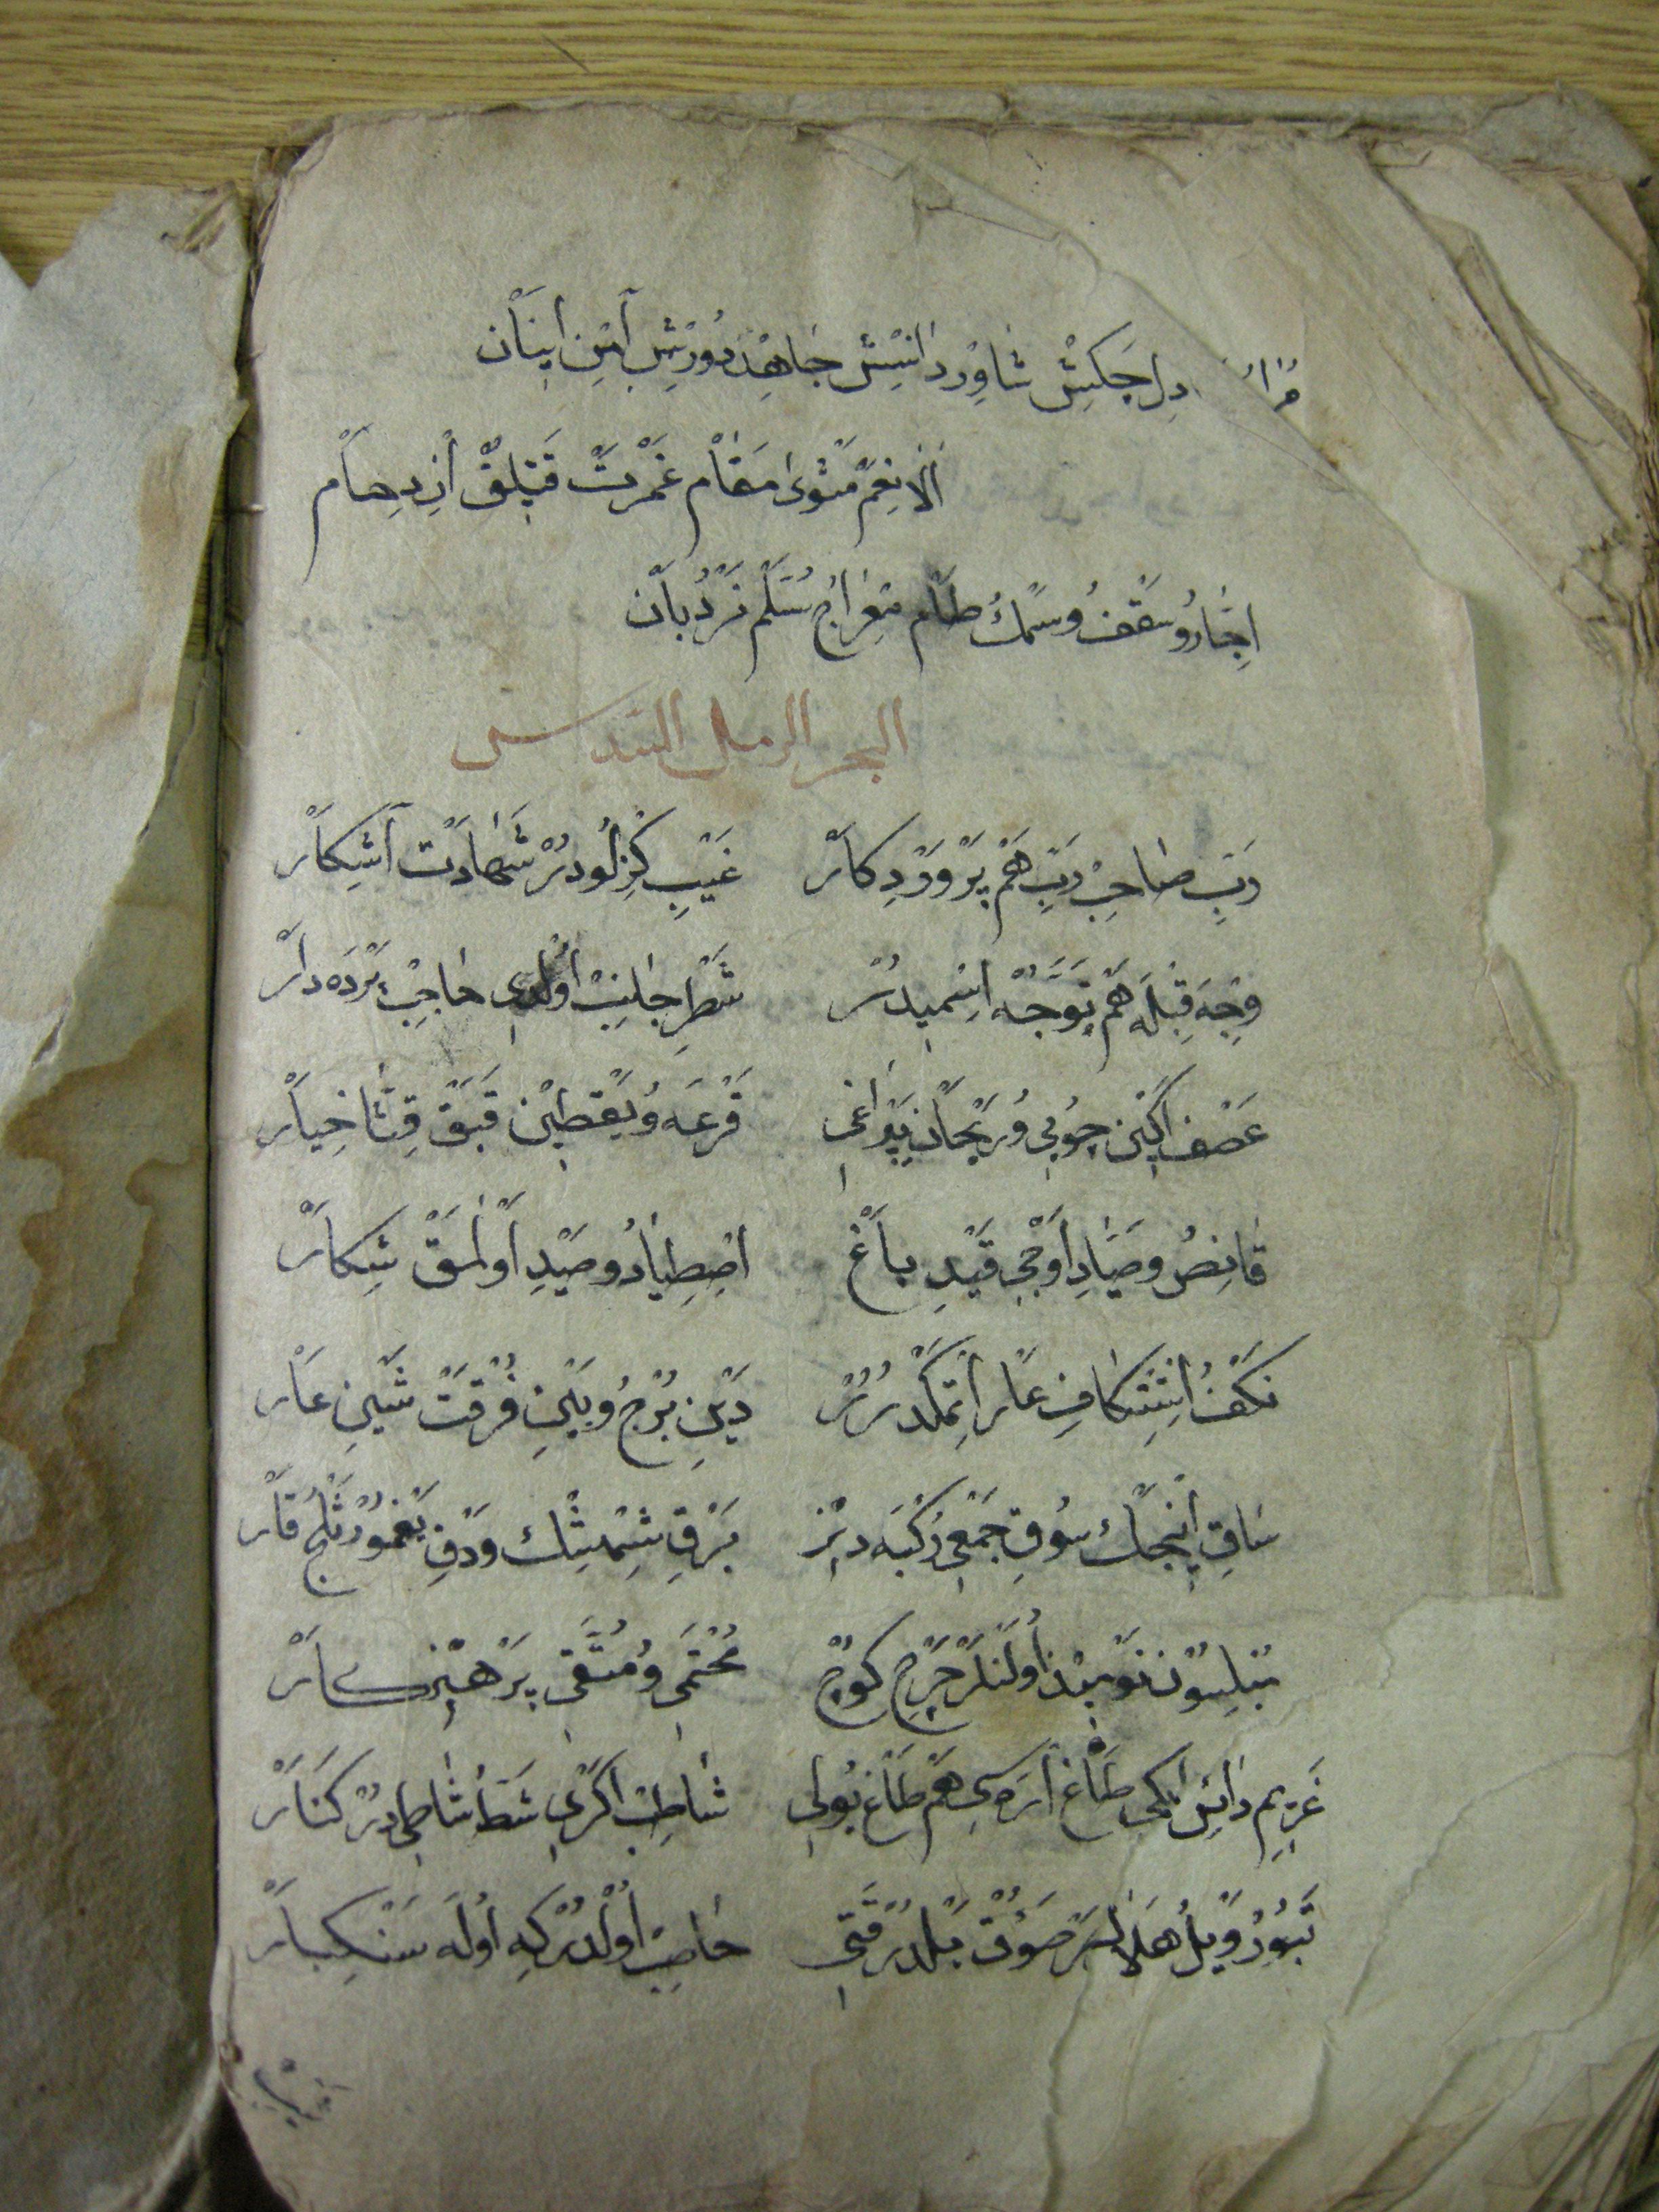 دِلِ جَكِشْ شَاوِرْ دَانِشْ جَاهِدْ دُورِشِ آمِنْ اِينَانْ
اَلَا نِعَمْ مَثْوٰى مَقَامْ غَمْرَتْ قَتِيلِقْ اِزْدِحَامْ
وُسَقْفُ وُسَمْكُ طَامْ مِعْرَاجُ سُلَّمْ نَرْدُبَانْ
البحر الرمل المسدس
رَبِّ صَاحِبْ رَبِّ هَمْ پَرْوَرْدِكَارْ غَيْبِ كِزْلُودُرْ شَهَادَتْ آشِكَارْ
وِجْهَه قِبْلَه هَمْ تَوَجُّهْ اِسْمِيدُرْ شَطْرِ جَانِبْ اُولْدِى حَاجِبْ پَرْدَه دَارْ
عَصْفِ اَكِينْ چُوپِى وُ رَيْحَانْ يَپْرَاغِى قَرْعَه وُ يَقْطِينْ قَبَقْ قِثَّا خِيَارْ
قَانِصُ وصَيَّادِ اَوْجِى قَيْدِ بَاغْ اِصْطِيَادُ وصَيْدِ اَوْلَمَقْ شِكَارْ
نَكْفُ اِسْتِنْكَافِ عَارْ اِتْمَكْدُرُرْ دَيْنِ بُرْجُ وبَيْنِ فُرْقَتْ شَيْنِ عَارْ
سَاقِ اِينْجَكْ سُوقِ جَمْعِى رُكْبَه دِيزْ بَرْقِ شِمْشِكْ وَدْقِ يَغْمُورْ ثَلْجُ قَارْ
مُبْلِسُونْ نَوْمِيدْ اُولَنْلَرْ خَرْجِ كُوجْ مُحْتَمِى وُ مُتَّقِى پَرْهِيزْكَارْ
غَرِيمِ دَايِنْ اِيكِى طَاغْ آرَه سِى هَمْ طَاغْ يُولِى شَاطِبْ اكْرِى شَطُّ شَاطِى دُرْ كَنَارْ
ثُبُورُ وَيْلُ هَلَاكْ صَرْ صَوُقْ يَلْدُرْ قَتِى حَاصِبْ اُولْدُرْ كِه اُولَه سَنْكِبَارْ